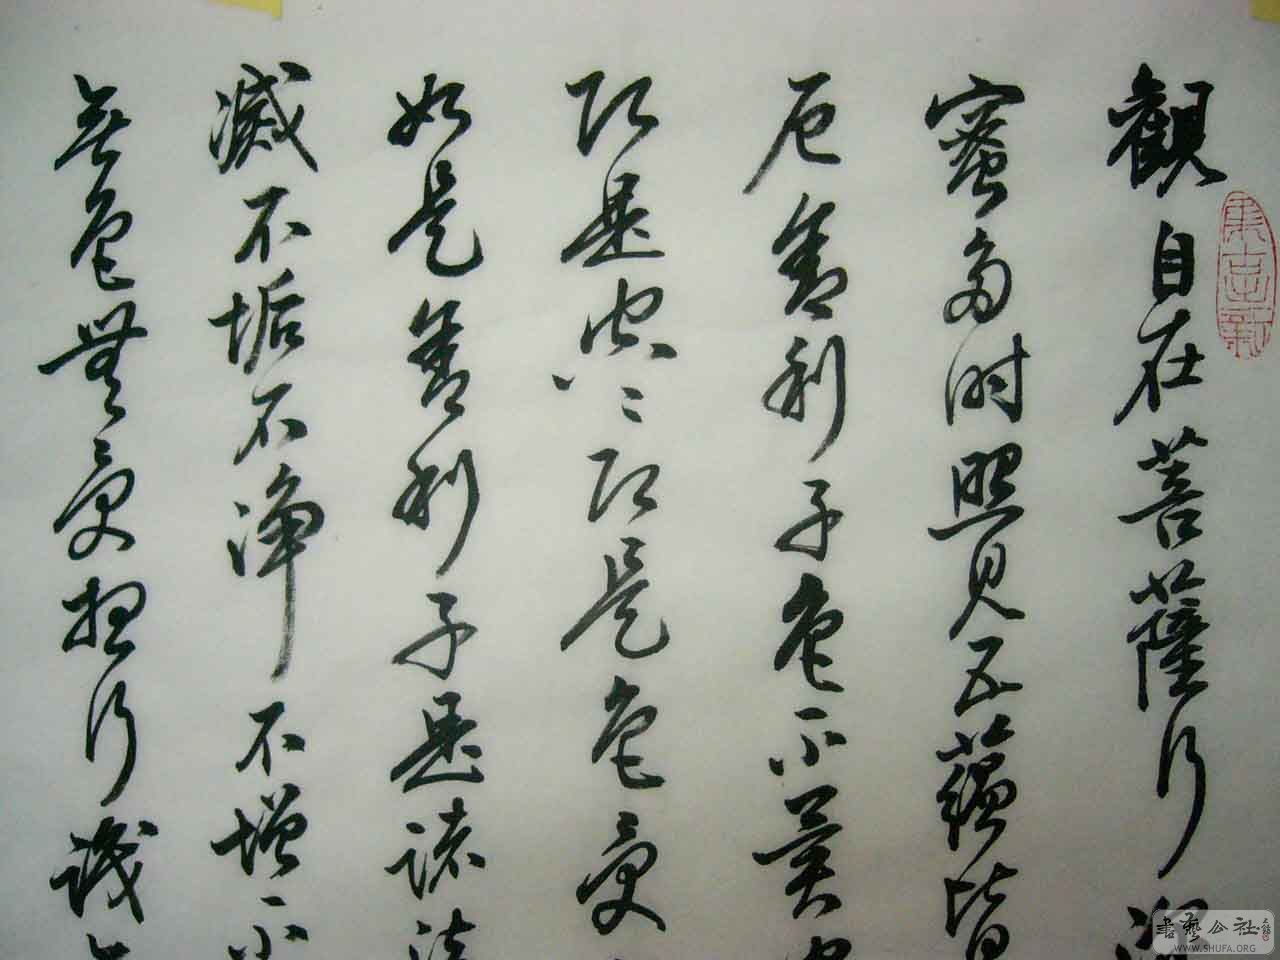 觀自在菩薩行深
蜜多時照見五蘊皆
厄舍利子色不異空
即是空〻即是色受
如是舍利子是諸法
滅不垢不淨不增不
無色無受想行識
書藝公社
WWW.SHUFA.ORG